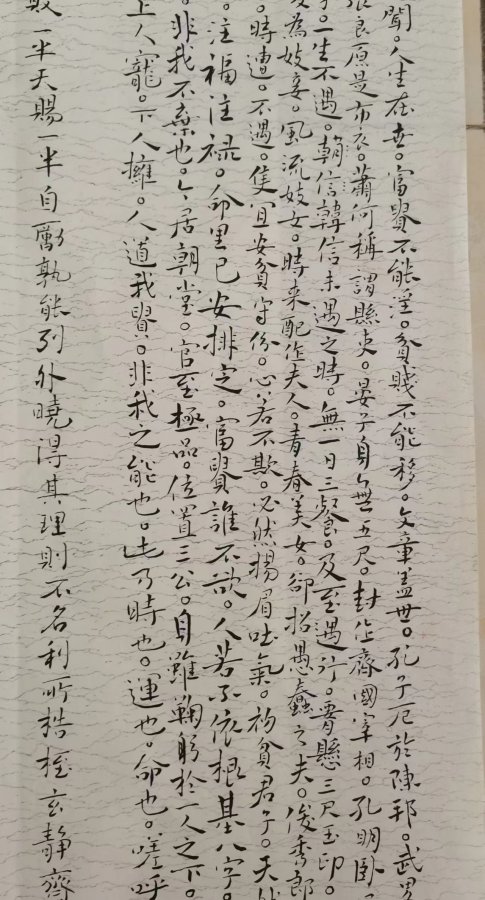 聞。人生在世。富貴不能淫。貧賤不能移。文章盖世。孔子厄於陳邦。武
良原是布衣。蕭何稱謂縣吏。晏子身無五尺。封作齊國宰相。孔明卧
一生不遇。朝信韓信未遇之時。無一日三餐。及至遇行。懸三尺玉印。
為妓妾。風流妓女。時来配作夫人。青春美女。卻招愚蠢之夫。俊秀郎
時遭。不遇。隻宜安貧守份。心若不欺。必然揚眉吐氣。初貧君子。天
。注福注禄。命里已安排定。富貴誰不欲。人若不依根基八字。
。非我不棄也。今居朝堂。官至極品。位置三公。身雖鞠躬於一人之下。
上人寵。下人擁。人道我貴。非我之能也。此乃時也。運也。命也。嗟呼
敗一半天賜一半自勵孰能列外曉得其理則不名利所梏桎玄静齋